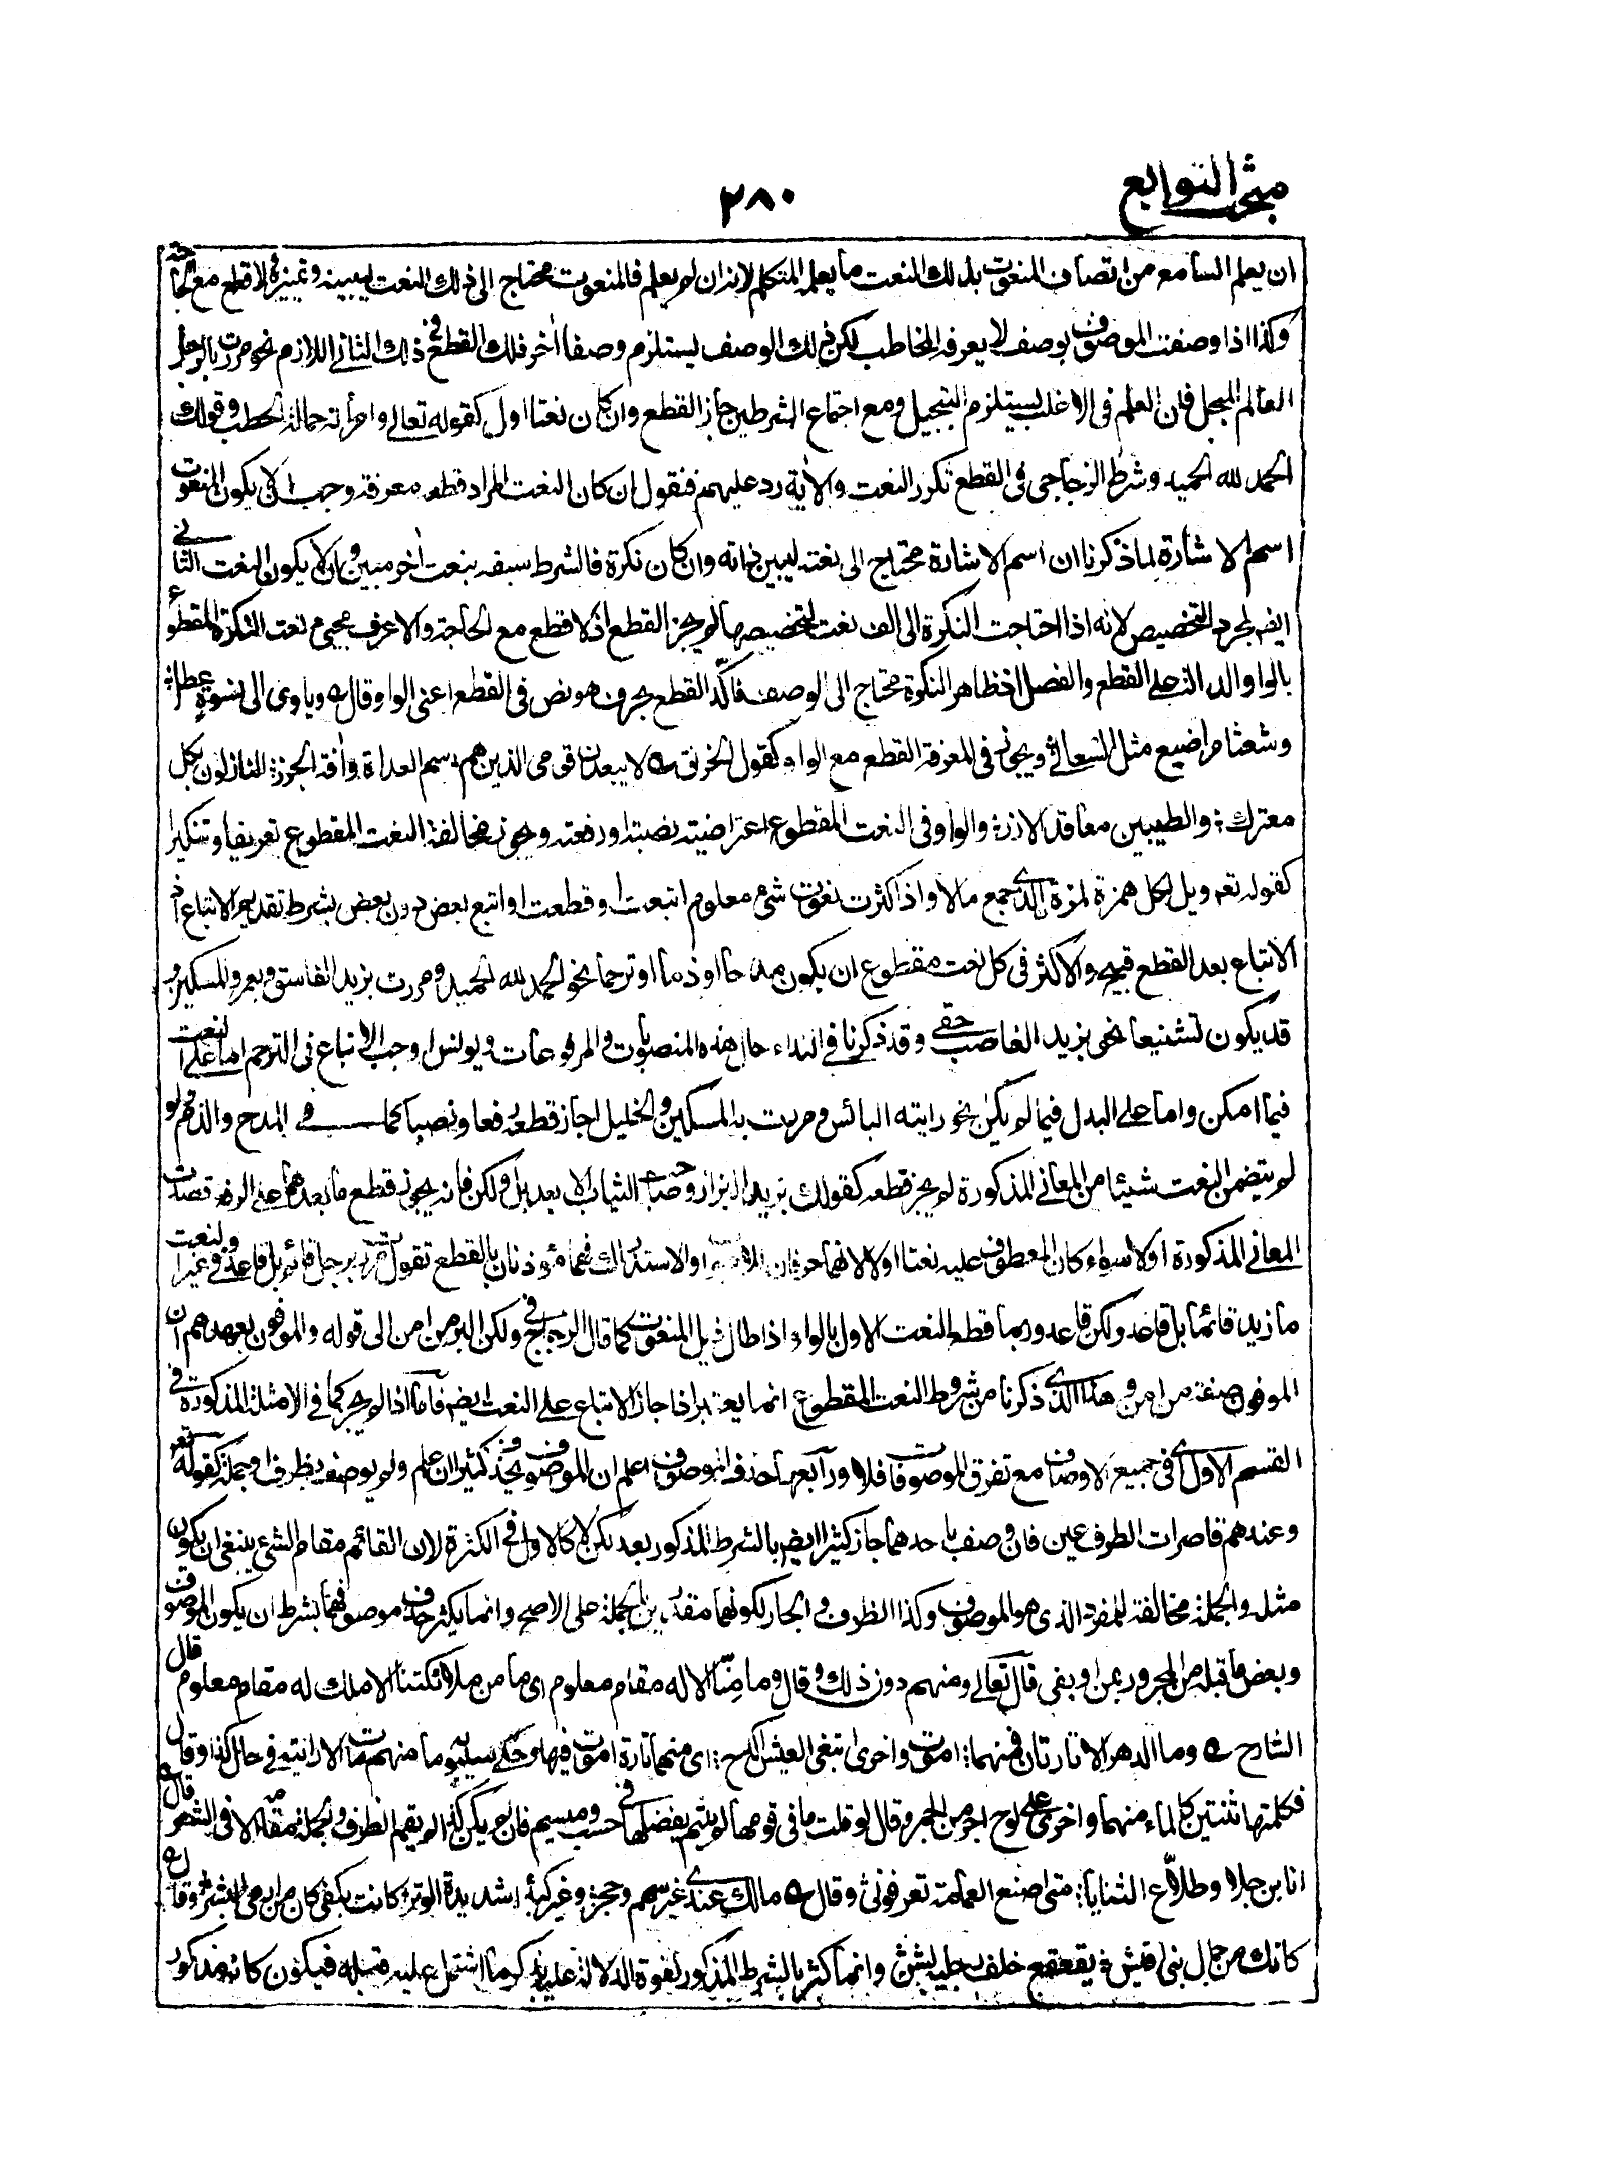 مبحث التوابع
٢٨٠
ان يعلم السامع من اتصاف المنعوت بذلك النعت ما يعلمه المتكلم لانه ان لم يعلم فالمنعوت محتاج الى ذلك النعت ليبينه ويميزه ولا قطع مع الحاجة
وكذا اذا وصفت الموصوف بوصف لا يعرفه المخاطب لكن ذلك الوصف يستلزم وصفا اخر فلك القطع فى ذلك الثانى اللازم نحو مررت بالرجل
العالم المبجل فان العلم فى الاغلب يستلزم التبجيل ومع اجتماع الشرطين جاز القطع وان كان نعتا اول كقوله تعالى وامرأته حمالة الحطب وقولك
الحمد لله الحميد وشرط الزجاجى فى القطع تكرر النعت والأية رد عليهم فنقول ان كان النعت المراد قطعه معرفة وجب ان لا يكون المنعوت
اسم الاشارة لما ذكرنا ان اسم الاشارة محتاج الى نعته ليبين ذاته وان كان نكرة فالشرط سبقه بنعت اخر مبين وان لا يكون النعت الثانى
ايضم لمجرد التخصيص لانه اذا احتاجت النكرة الى الف نعت لتخصيصها لم يجز القطع اذ لا قطع مع الحاجة والاعرف مجيء نعت النكرة المقطوع
بالواو الدالة على القطع والفصل اذ ظاهر النكرة محتاج الى الوصف فاكّد القطع بحرف هو نص فى القطع اعنى الواو قال ؎ وياوى الى نسوةٍ عطل؛
وشعثا مراضيع مثل السعالى؛ ويجوز فى المعرفة القطع مع الواو كقول الخرنق ؎ لا يبعدن قومى الذين هم؛ سم العداة وأفة الجزر؛ النازلون بكل
معترك؛ والطيبين معاقد الازر؛ والواو فى النعت المقطوع اعتراضية نصبته او رفعته ويجوز مخالفة النعت المقطوع تعريفا وتنكيرا
كقوله تعم ويل لكل همزة لمزة الذى جمع مالا واذا كثرت نعوت شىء معلوم اتبعت او قطعت او اتبع بعض دون بعض بشرط تقديم الاتباع اذ
الاتباع بعد القطع قبيح والاكثر فى كل نعت مقطوع ان يكون مدحا او ذما او ترحما نحو الحمد لله الحميد ومررت بزيد الفاسق وبعمرو المسكين و
قد يكون تشنيعا نحو بزيد الغاصب حقى وقد ذكرنا فى النداء حال هذه المنصوبات والمرفوعات ويونس اوجب الاتباع فى الترحم اما على النعت
فيما امكن واما على البدل فيما لم يكن نحو رايته البائس ومررت به المسكين والخليل اجاز قطعه رفعا ونصبا كما فى المدح والذم ولو
لم يتضمن النعت شيئا من المعانى المذكورة لم يجز قطعه كقولك بزيد البزاز وصاحب الثياب الا بعد بل ولكن فانه يجوز قطع ما بعدهما على الرفع قصدت
المعانى المذكورة اولا سواء كان المعطوف عليه نعتا اولا لانهما حرفان او الاستدراك فهما مؤذنان بالقطع تقول مررت برجل قائم بل قاعد وفى غير النعت
ما زيد قائما بل قاعد ولكن قاعد وربما قطع النعت الاول بالواو اذا طال ذيل المنعوت كما قال الزجاج فى ولكن البر من امن الى قوله والموفون بعهدهم ان
الموفون صفة من امن وهذا الذى ذكرنا من شروط النعت المقطوع انما يعتبر اذا جاز الاتباع على النعت ايضم فأما اذا لم يجز كما فى الامثلة المذكورة فى
القسم الاول فى جميع الاوصاف مع تفرق الموصوفات فلا ورابعها حذف الموصوف اعلم ان الموصوف يحذف كثيرا ان علم ولم يوصف بظرف او جملة كقوله تعم
وعندهم قاصرات الطرف عين فان وصف باحدهما جاز كثيرا ايضم بالشرط المذكور بعد لكن لا كالاول فى الكثرة لان القائم مقام الشىء ينبغى ان يكون
مثله والجملة مخالفة للمفرد الذى هو الموصوف وكذا الظرف والجار لكونهما مقدرين بالجملة على الاصح وانما يكثر حذف موصوفهما بشرط ان يكون الموصوف
وبعض ما قبله من المجرور بمن او بفى قال تعالى ومنهم دون ذلك وقال وما مِنّا الا له مقام معلوم اى ما من ملائكتنا الا ملك له مقام معلوم قال
الشارح ؎ وما الدهر الا تارتان فمنهما؛ اموت واخرى ابتغى العيش اكدح؛ اى منهما تارة اموت فيها وحكى سيبويه ما منهم مات الا رايته فى حال كذا وقال ؎
فكلمتها ثنتين كالماء منهما؛ واخرى على لوح احر من الجمر وقال لو قلت ما فى قومها لم تيثم يفضلها فى حسب وميسم فان لم يكن كذا لم يقم الظرف والجملة مقامه الا فى الشعر قال ؎
انا بن جلا وطلاّع الثنايا؛ متى اضع العمامة تعرفونى؛ وقال ؎ مالك عندى غير سهم وحجر؛ وغير كبداء شديدة الوتر؛ كانت بكفى كان من ارمى البشر؛ وقال ؎
كانك من جمال بنى اقيش؛ يقعقع خلف رجليه بشن وانما كثر بالشرط المذكور لقوة الدلالة عليه بذكر ما اشتمل عليه قبله فيكون كانه مذكور